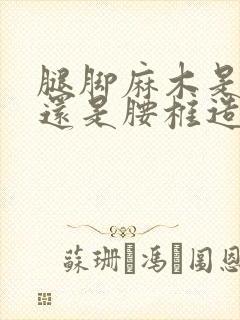 腿脚麻木是
還是腰椎造
蘇珊 馮 圖恩